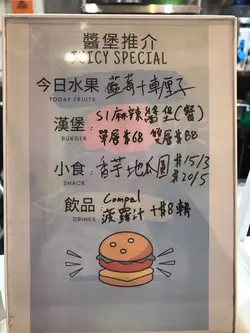 醬堡推介
JUICY SPECIAL
今日水果
TODAY FRUITS
漢堡 : S1麻辣醬堡(餐)
BURGER
單層$68 雙層$88
小食 : 香芋地瓜圓 $15/3
SNACK
$20/5
飲品 : Compal
DRINKS
菠蘿汁 +$8轉